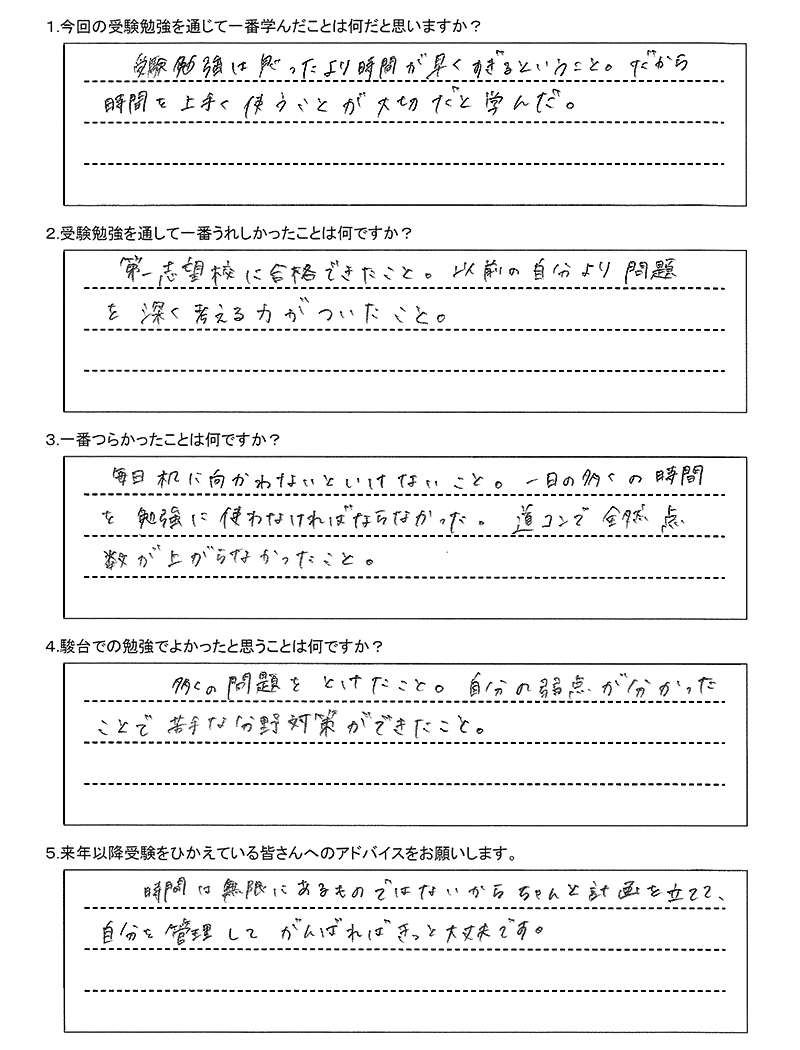 1.今回の受験勉強を通じて一番学んだことは何だと思いますか？
受験勉強は思ったより時間が早くすぎるということ。だから
時間を上手く使うことが大切だと学んだ。
2.受験勉強を通して一番うれしかったことは何ですか？
第一志望校に合格できたこと。以前の自分より問題
を深く考える力がついたこと。
3.一番つらかったことは何ですか？
毎日机に向かわないといけないこと。一日の多くの時間
を勉強に使わなければならなかった。道コンで全然点
数が上がらなかったこと。
4.駿台での勉強でよかったと思うことは何ですか？
多くの問題をとけたこと。自分の弱点が分かった
ことで苦手な分野対策ができたこと。
5.来年以降受験をひかえている皆さんへのアドバイスをお願いします。
時間は無限にあるものではないからちゃんと計画を立てて、
自分を管理してがんばればきっと大丈夫です。